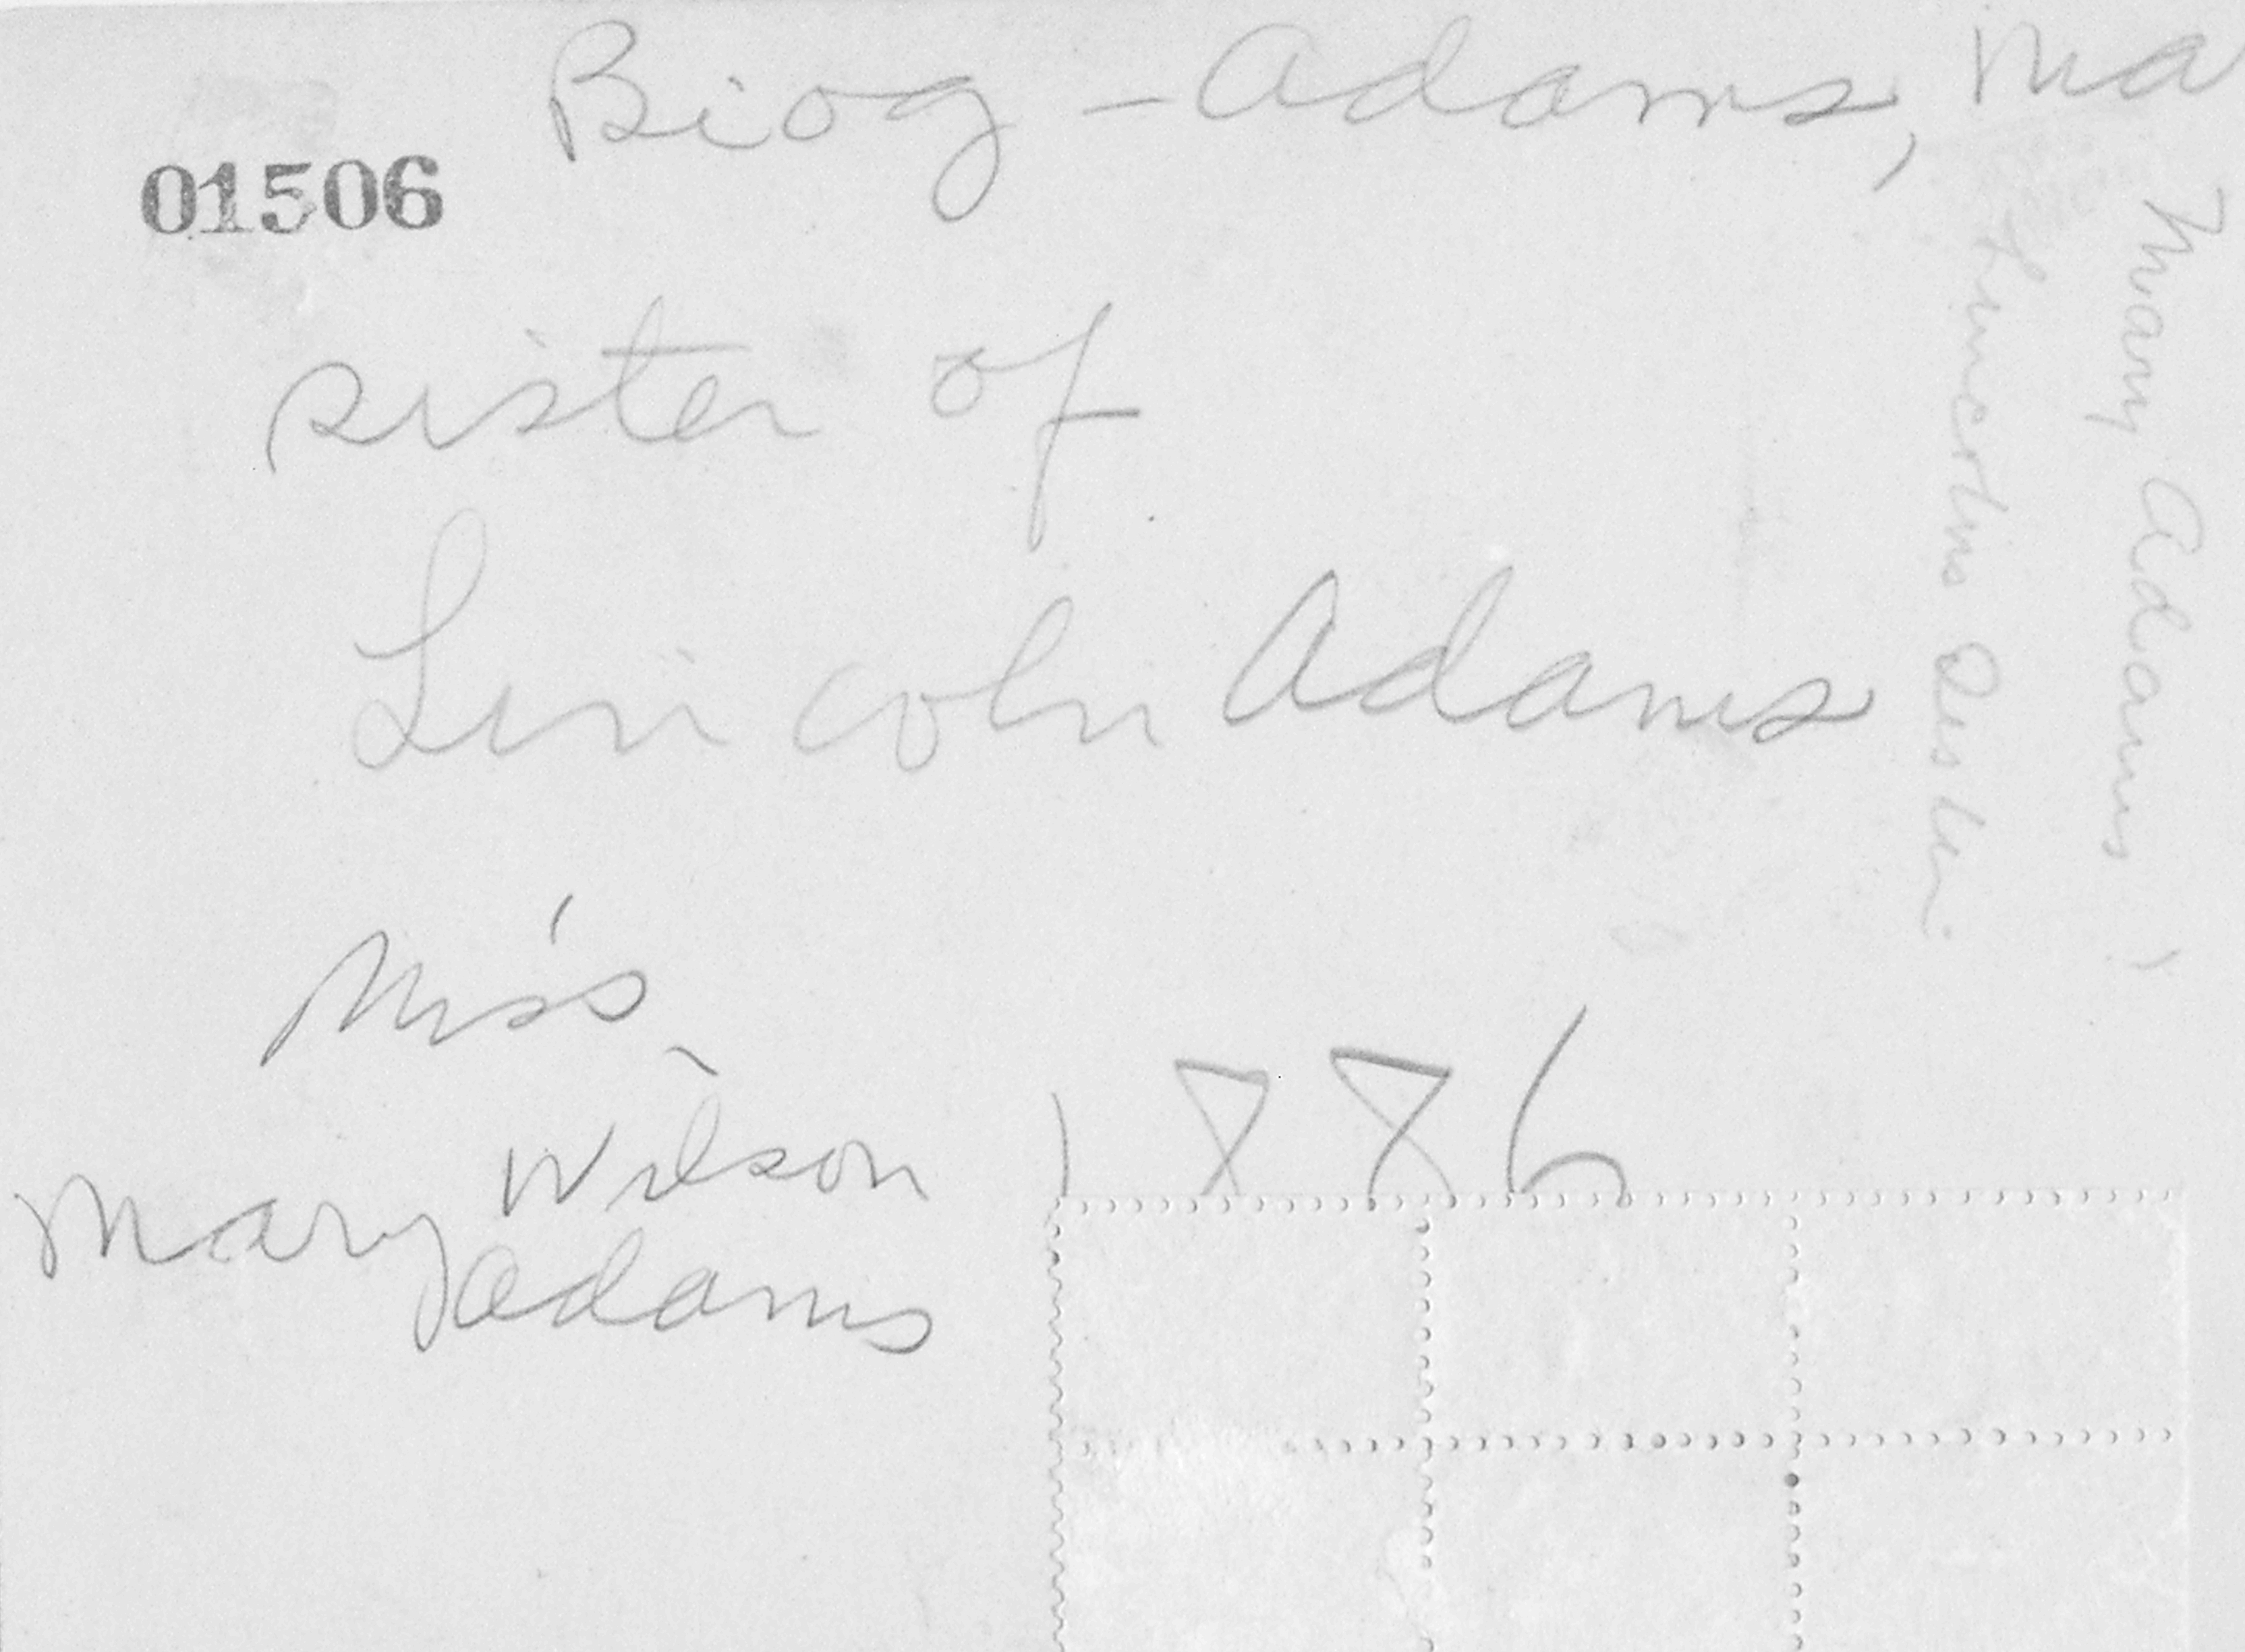 Biog - Adams, Ma
01506
sister of
Lincoln Adams
Miss
Mary Wilson
Adams
1886
Mary Adams,
Lincolns Sister.